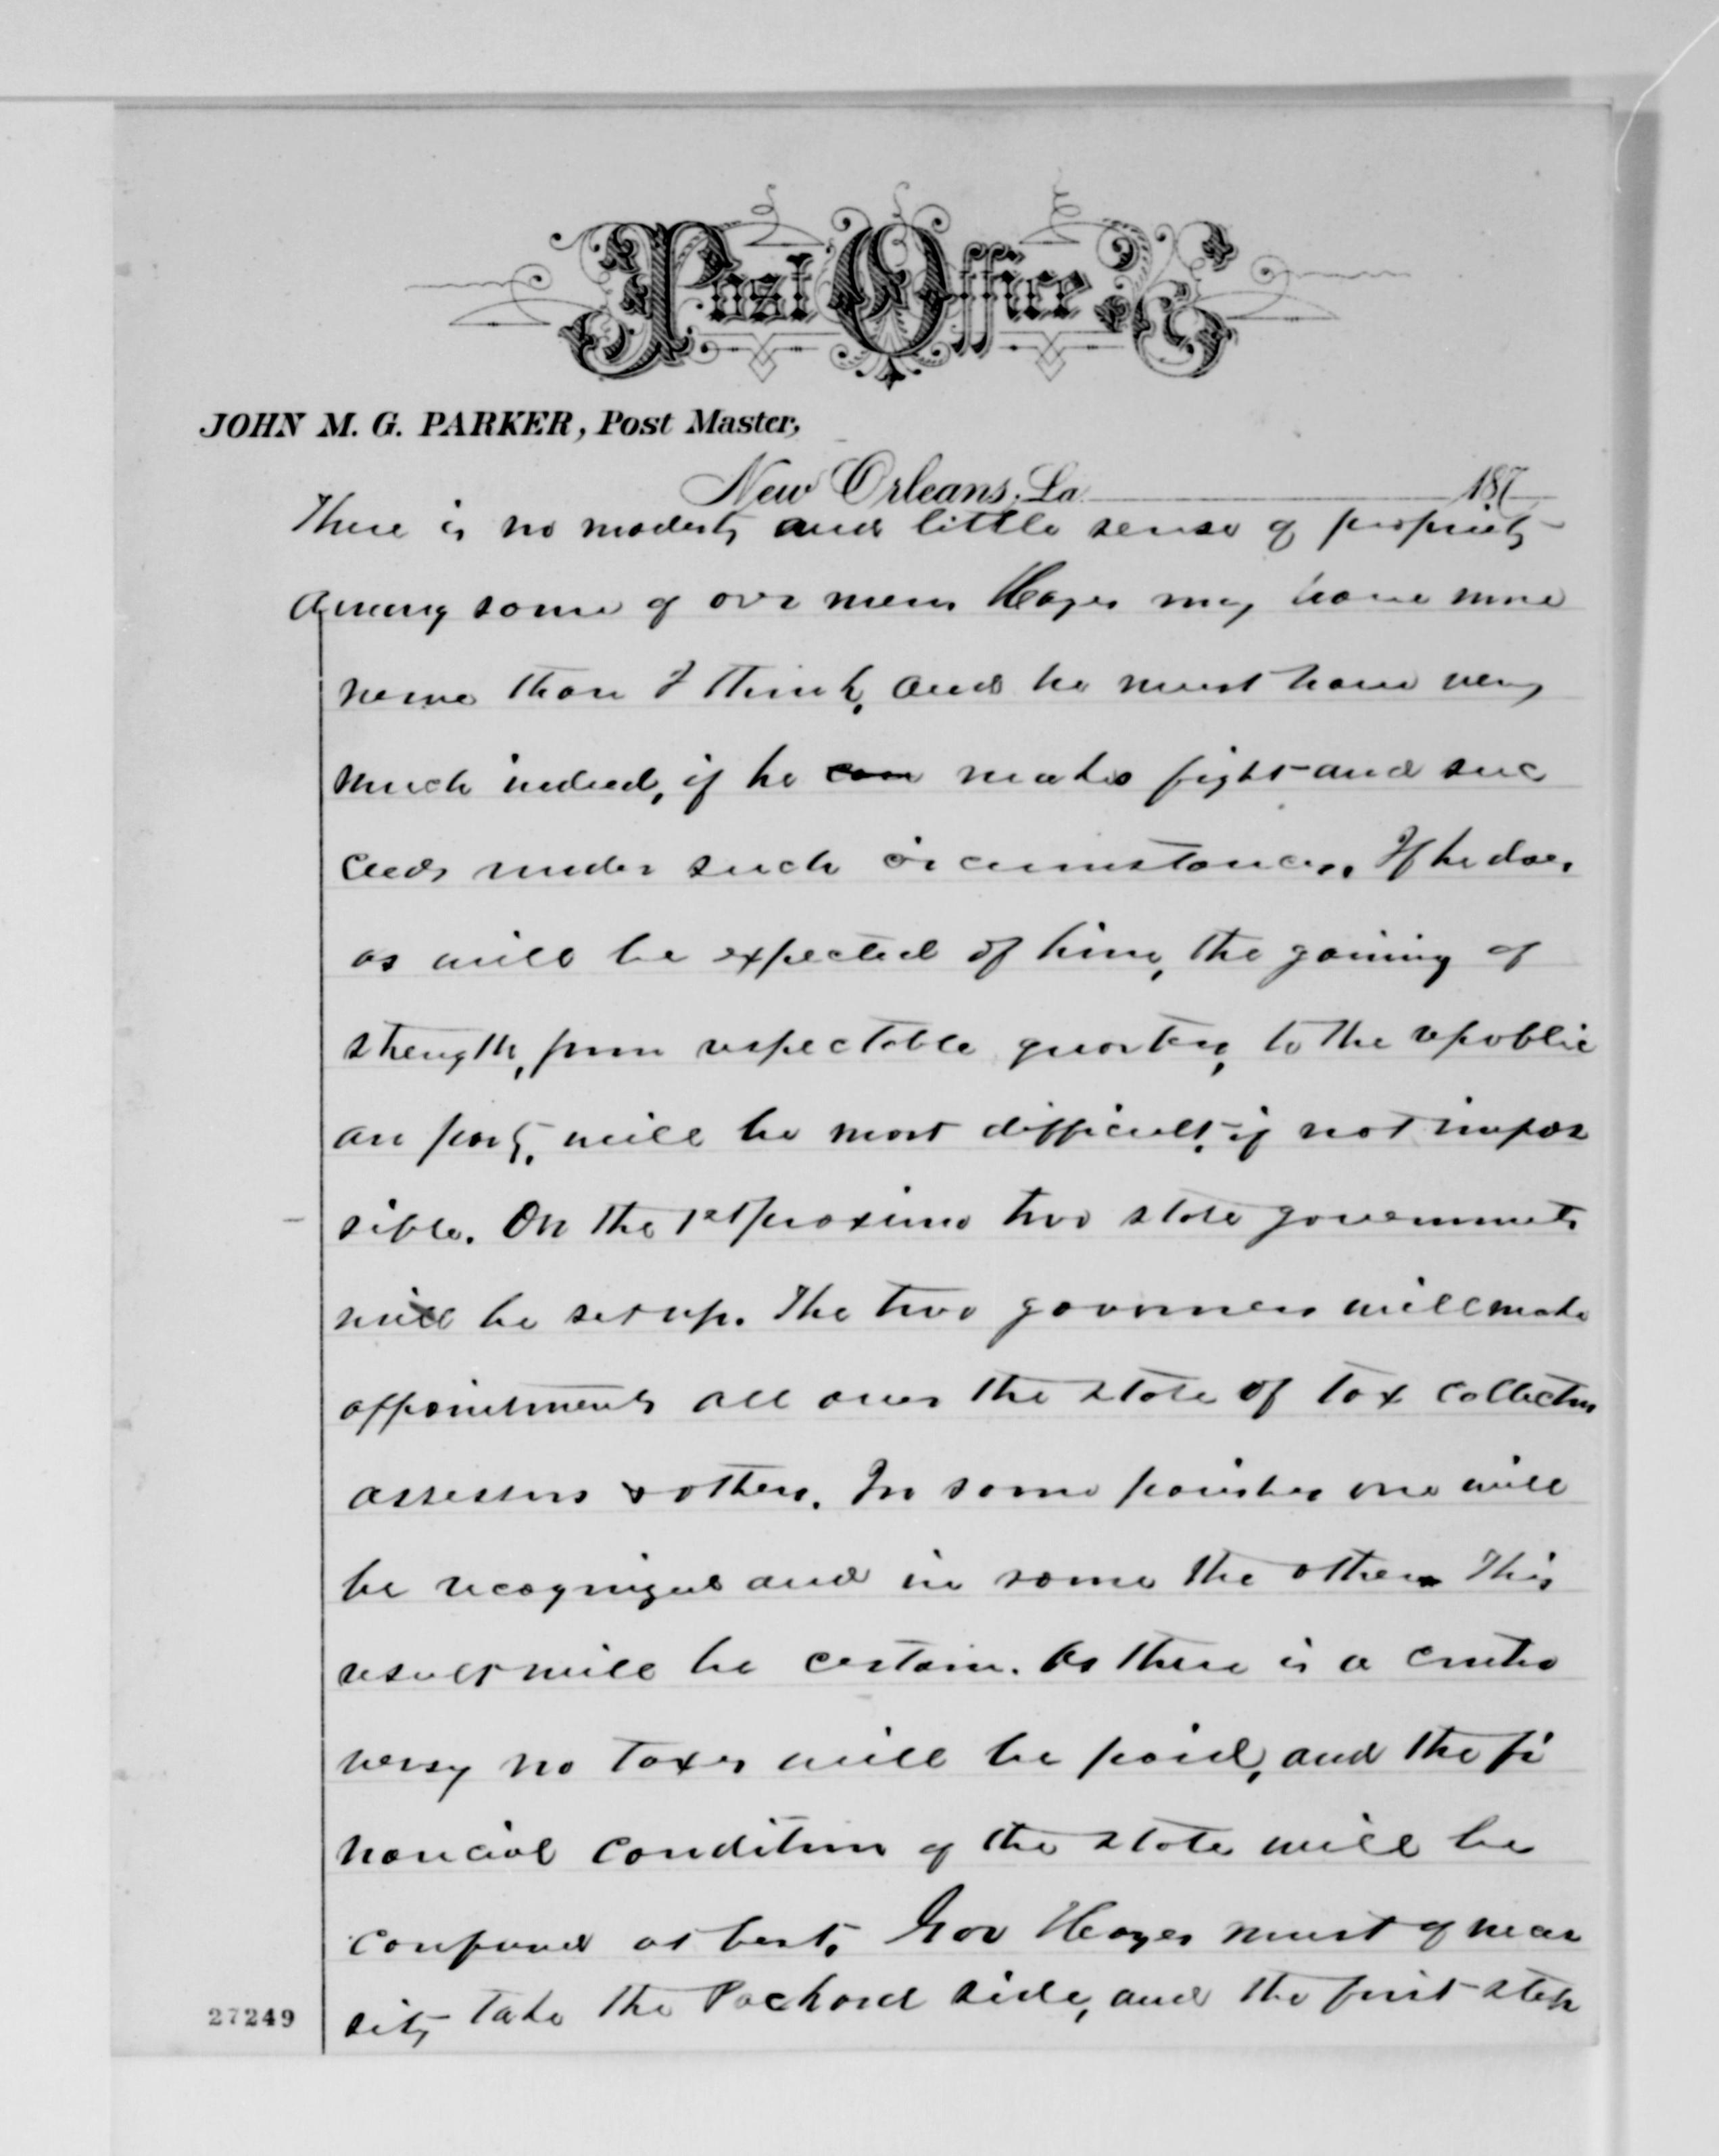 Post Office
JOHN M. G. PARKER, Post Master,
New Orleans, La 187
There is no modesty and little sense of propriety
among some of our men. Hayes may have more
nerve than I think, and he must have very
much indeed, if he can makes fight and suc
ceeds under such circumstances. If he does,
as will be expected of him, the gaining of
strength, from respectable quarters, to the republic
an party, will be most difficult, if not impos
sible. On the 1st proximo two state governments
will be set up. The two governors will make
appointments all over the state of tax collectors
assessors & others. In some parishes one will
be recognized and in some the other. This
result will be certain. As there is a contro
versy no taxes will be paid, and the fi
nancial condition of the state will be
confused at best. Gov Hayes must of neces
sity take the Packard side, and the first step
27249